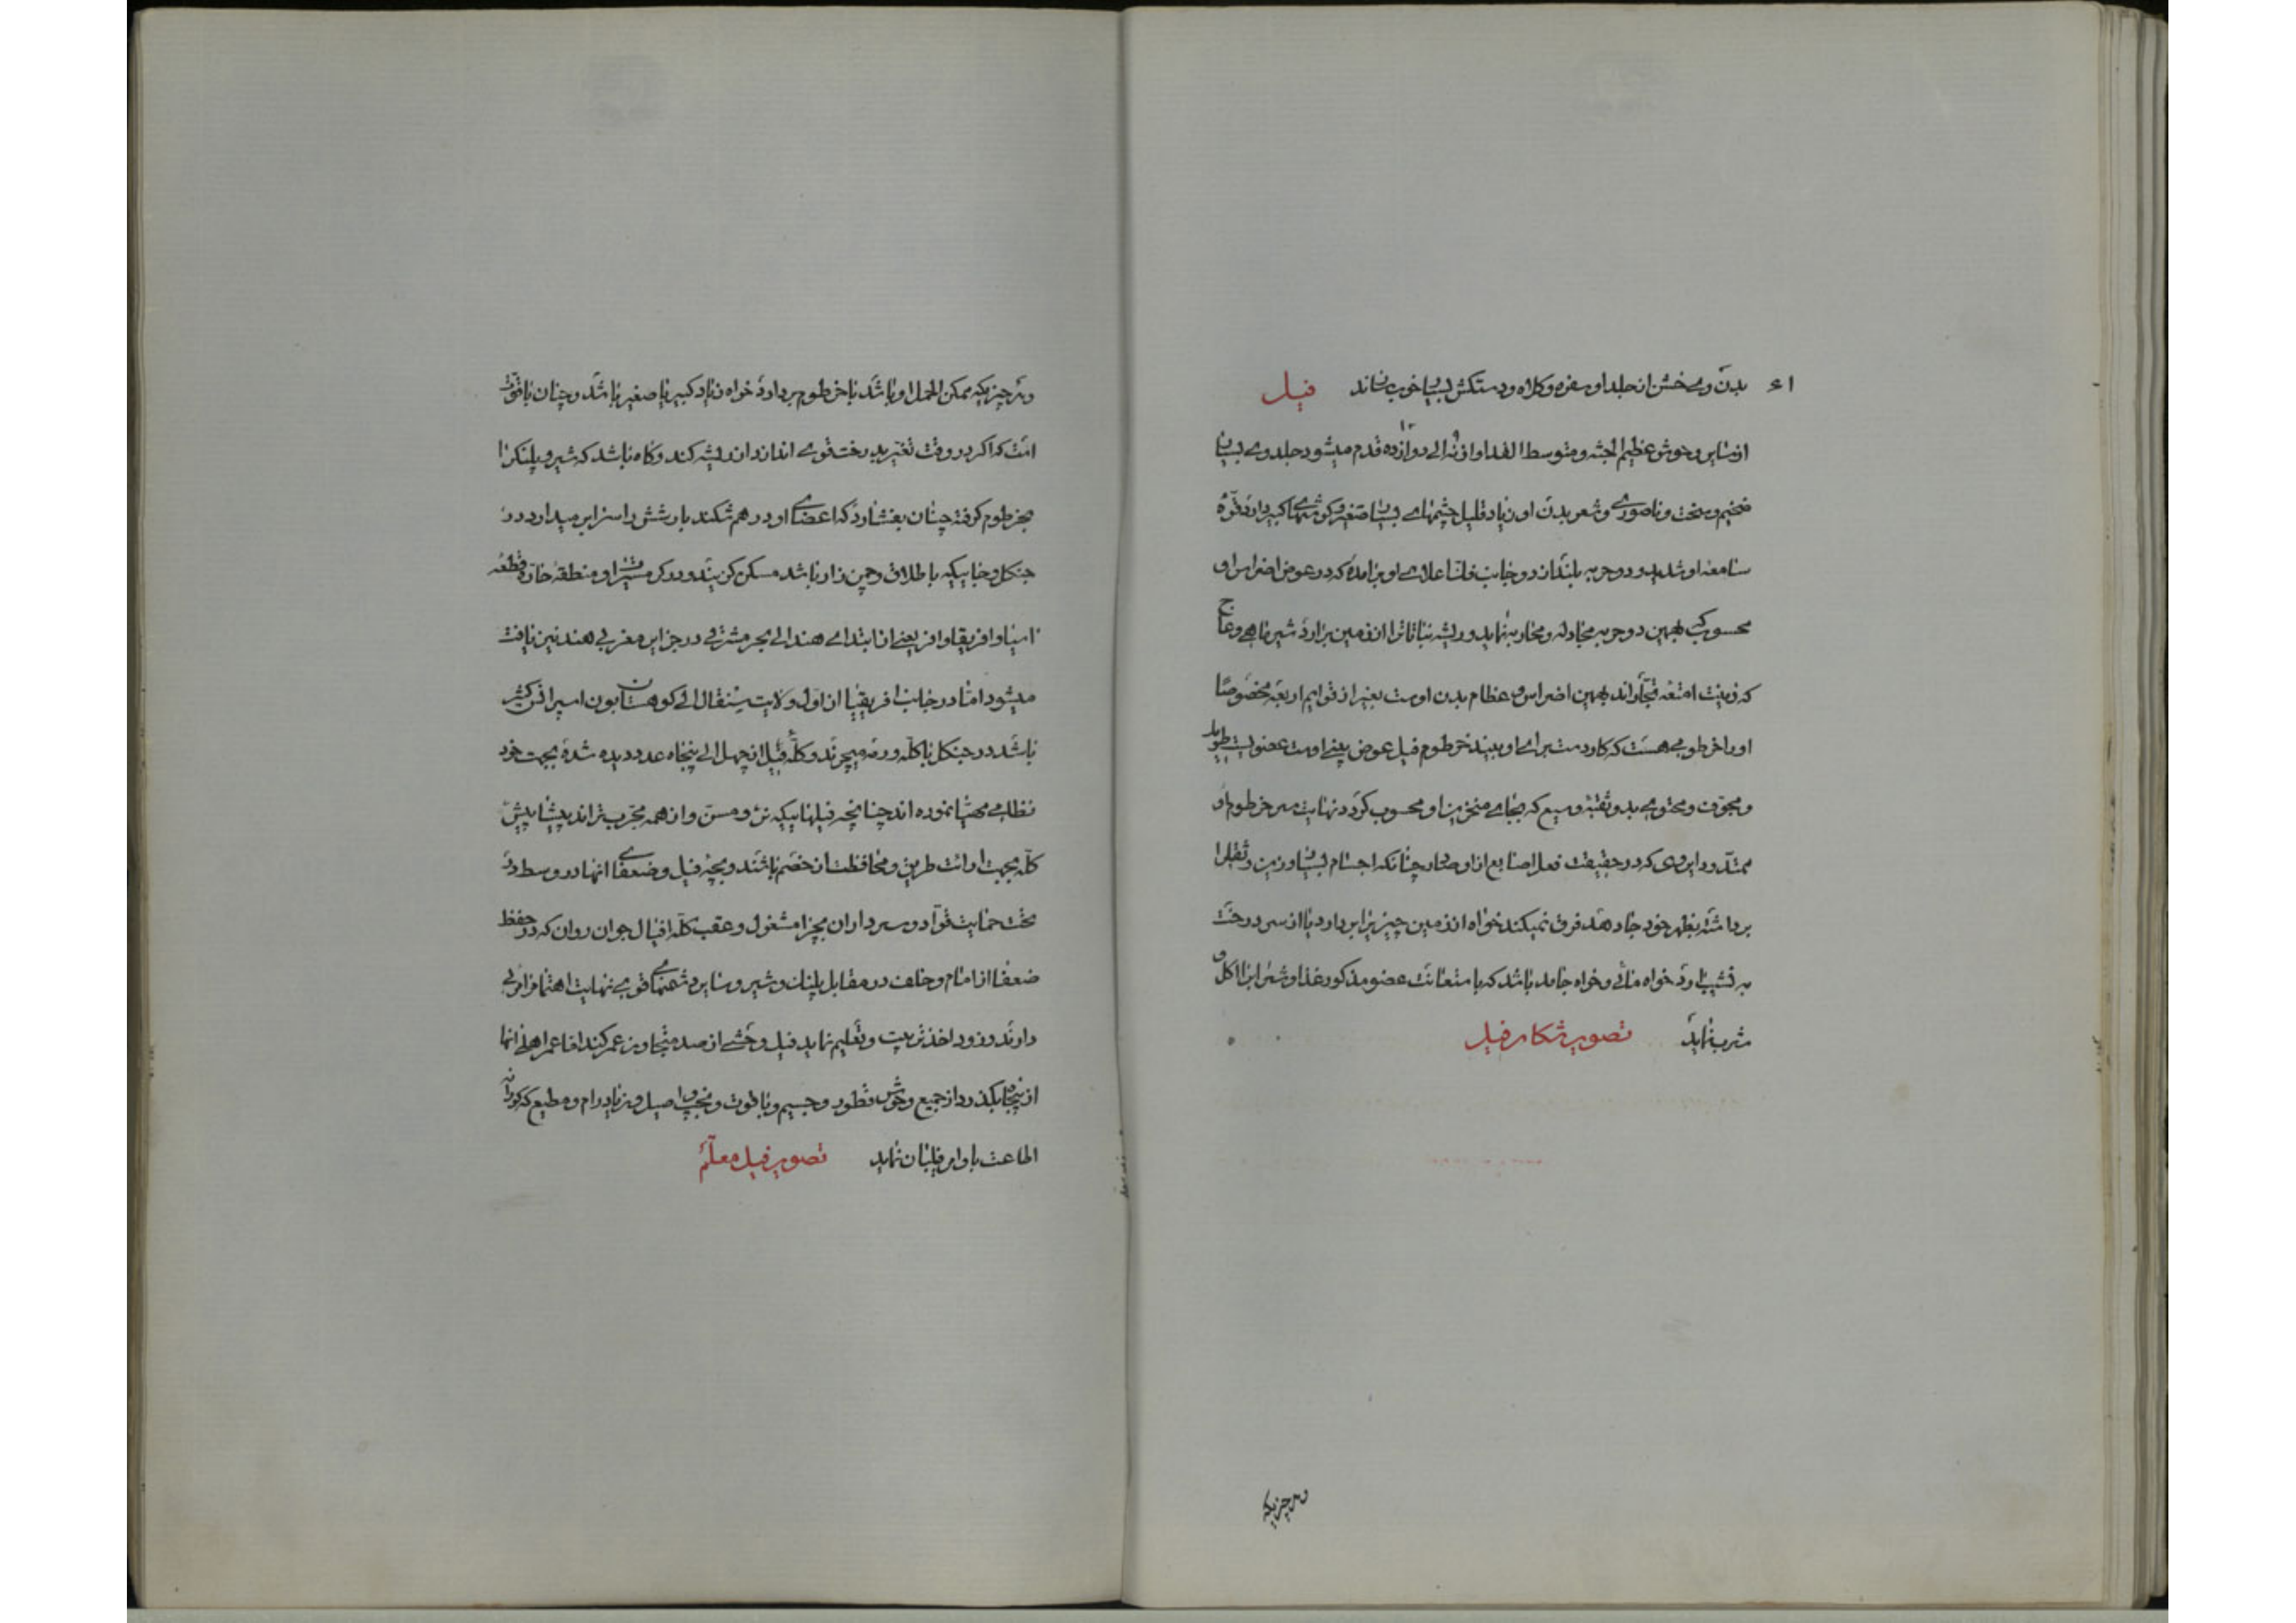 بدن وی خشن از جلد او سفره و کلاه و دستکش بسیار خوب سازند فیل
از سایر وحوش عظیم الجثه و متوسط القد او از نه الی دوازده قدم میشود جلد وی بسیار
ضخیم و سخت و ناصوری و شعر بدن او زیاد قلیل چشمهای بسیار صغیر و گوشهای کبیر دارد قوّه
سامعه او شدید و دو حربه بلند از دو جانب فک اعلای او برآمده که در عوض اضراس او
محسوب بهمین دو حربه مجادله و محاربه نماید و ریشه نباتات را از زمین برآرد شیرماهی و عاج
که زینت امتعه تجّاراند بهمین اضراس و عظام بدن اوست بغیر از قوایم اربعه مخصوصاً
او را خرطومی هست که کار دست برای او ببیند خرطوم فیل عوض بینی اوست عضویست طویل
و مجوّف و محتوی بدو ثقبه وسیع که بجای منخرین او محسوب گردد نهایت سر خرطوم او
ممتد و دایروی که در حقیقت فعل اصابع از او صادر چنانکه اجسام بسیار وزین و ثقیل را
برداشته بظهر خود جا دهد فرق نمیکند خواه از زمین چیزیرا بردارد یا از سر درخت
به نشیب آرد خواه مائی و خواه جامد باشد که با متعانت عضو مذکور غذا و شراب را اکل و
شرب نماید تصویر شکار فیل
و هر چیزیکه
و هر چیزیکه ممکن الحمل او باشد با خرطوم بردارد خواه زیاد کبیر یا صغیر باشد و چنان باقوّت
است که اگر در وقت تغیّر بدرخت قوی اندازد از ریشه کند و گاه باشد که شیر و پلنگ را
بخرطوم گرفته چنان بفشارد که اعضای او در هم شکند بارشش را سزابر میدارد در
جنگل و جاییکه باطلاق و چمن زار باشد مسکن گزیند و در کل مشرق او منطقه حارّه قطعه
آسیا و افریقا و افر یعنی از ابتدای هند الی بحر مشرقی در جزایر مغربی هند نیز یافت
میشود امّا در جانب افریقیا از اول ولایت سنقال الی کوهستان بون اسپرانس کثیر
باشد در جنگل با کله و رمه میچرند و کلّه فیل از چهل الی پنجاه عدد دیده شده بجهت خود
نظامی مهیّا نموده اند چنانچه فیلهاییکه نر و مسن و از همه مجرّب تراند پیشاپیش
کله بجهت ارائت طریق و محافظت از خصم باشند و بچه فیل و ضعفای آنها در وسط در
تحت حمایت قوّاد و سرداران بچرا مشغول و عقب کلّه افیال جوان روان که در حفظ
ضعفا از امام و خلف در مقابل پلنگ و شیر و سایر دشمنهای قوی نهایت اهتمام را مرعی
دارند و زود اخذ تربیت و تعلیم نماید فیل وحشی از صد متجاوز عمر کند اما عمر اهلی آنها
از پنجاه بگذرد از جمیع وحوش قطور و جسیم و باقوت و نجیب و اصیل و نر یا درام و مطیع که کورانه
اطاعت باوامر فیلبان نماید تصویر فیل معلّم